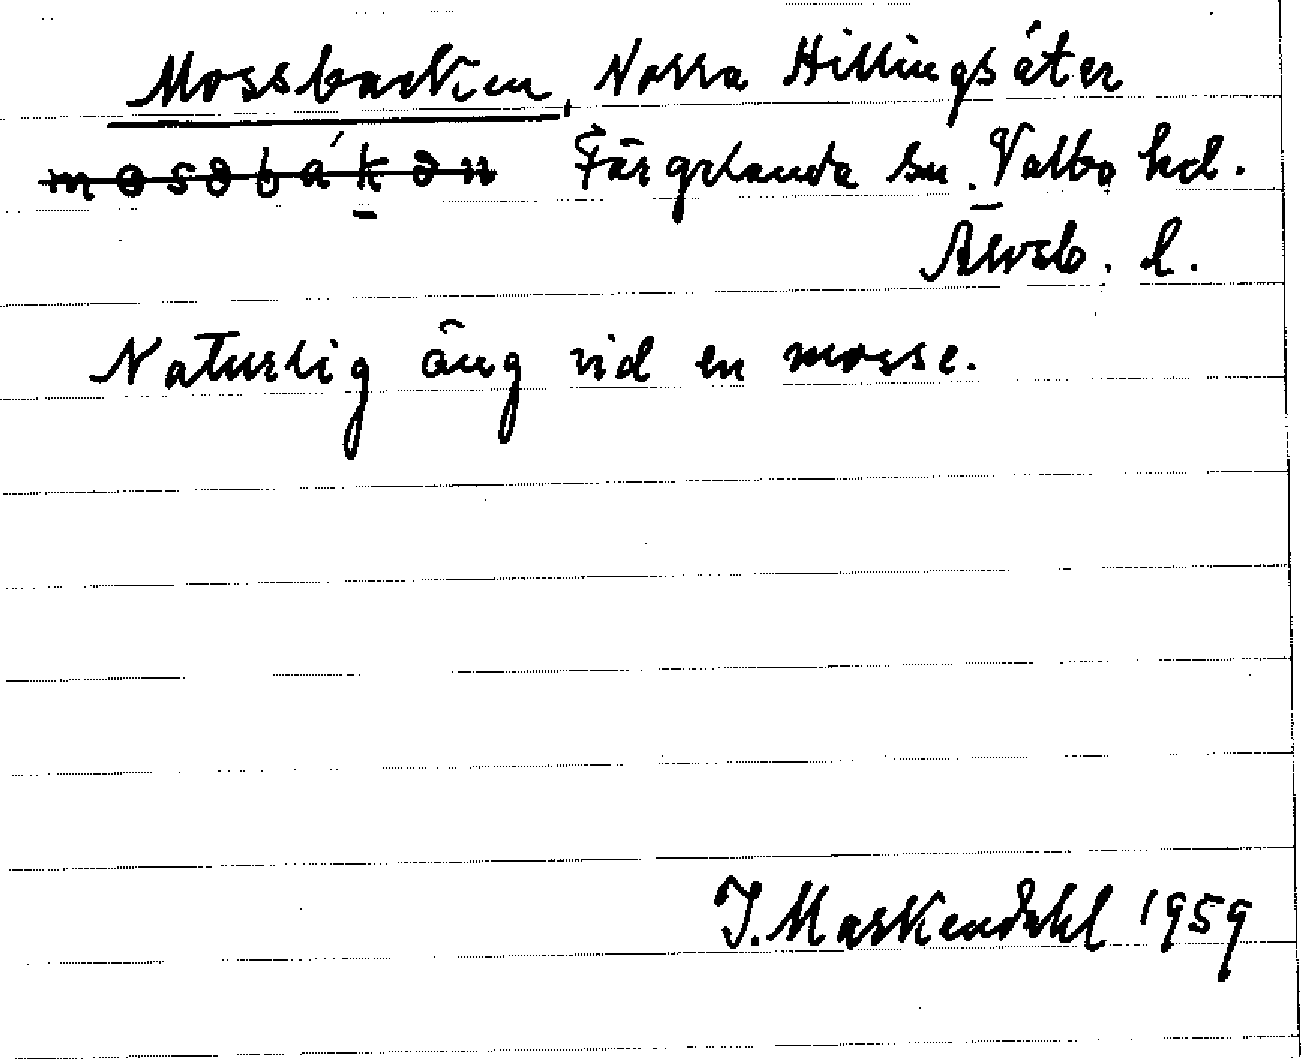 Mossbacken, Norra Hillingsäter
mosəbákən Färgelanda sn. Valbo hd.
Älvsb. l.
Naturlig äng vid en mosse.
J. Maskendahl 1959